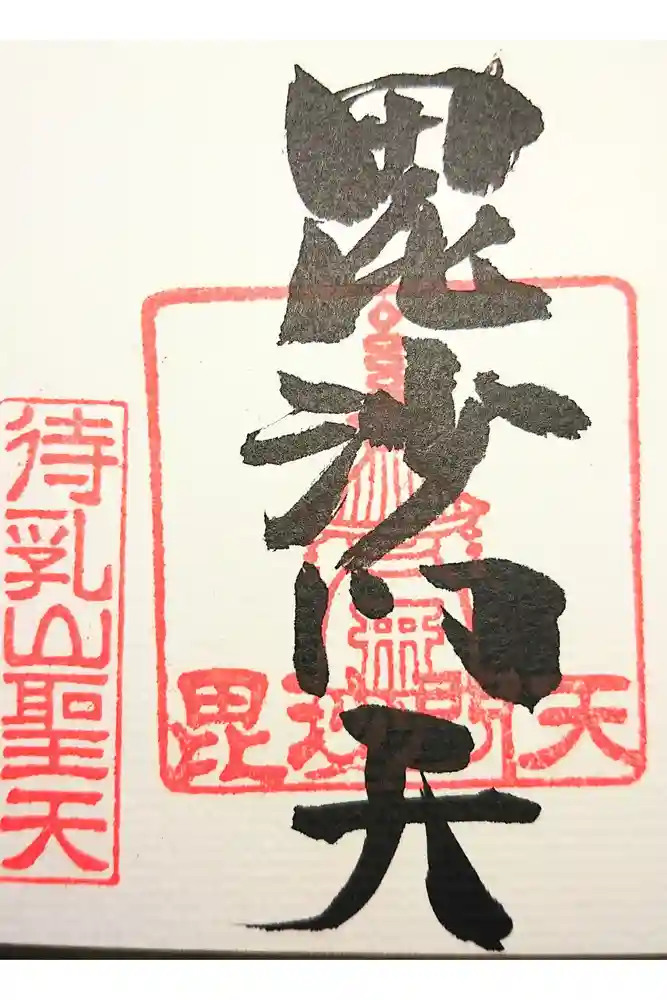 毘沙門天
毘沙門天
待乳山聖天